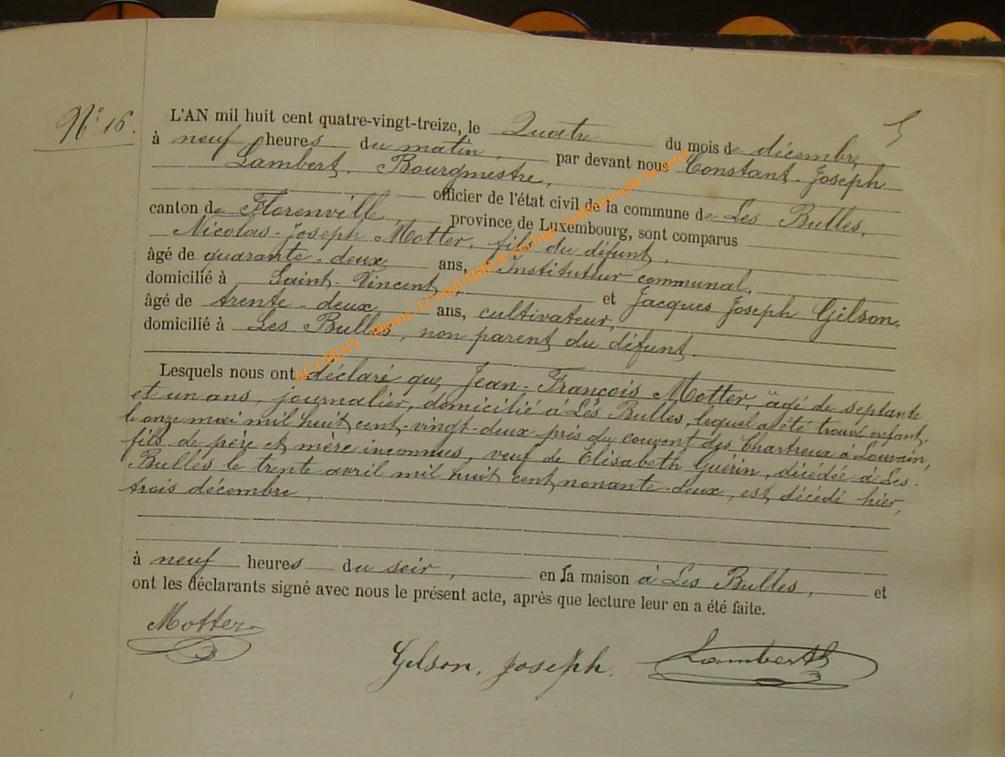 N° 16.
5
L'AN mil huit cent quatre-vingt-treize, le Quatre du mois de décembre
à neuf heures du matin, par devant nous Constant-Joseph
Lambert, Bourgmestre,
officier de l'état civil de la commune de Les Bulles,
canton de Florenville, province de Luxembourg, sont comparus
Nicolas-Joseph Motter, fils du défunt,
âgé de quarante-deux ans, instituteur communal,
domicilié à Saint-Vincent, et Jacques Joseph Gilson,
âgé de trente-deux ans, cultivateur,
domicilié à Les Bulles, non parent du défunt.
Lesquels nous ont déclaré que Jean-François Motter, âgé de septante
et un ans, journalier, domicilié à Les Bulles, lequel a été trouvé enfant,
le onze mai mil huit cent-vingt-deux près du couvent des Chartreux à Louvain,
fils de père et mère inconnus, veuf de Elisabeth Guérin, décédée à Les-
Bulles le trente avril mil huit cent nonante-deux, est décédé hier,
trois décembre,
à neuf heures du soir, en la maison à Les Bulles, et
ont les déclarants signé avec nous le présent acte, après que lecture leur en a été faite.
Motter
Gilson, Joseph.
Lambert